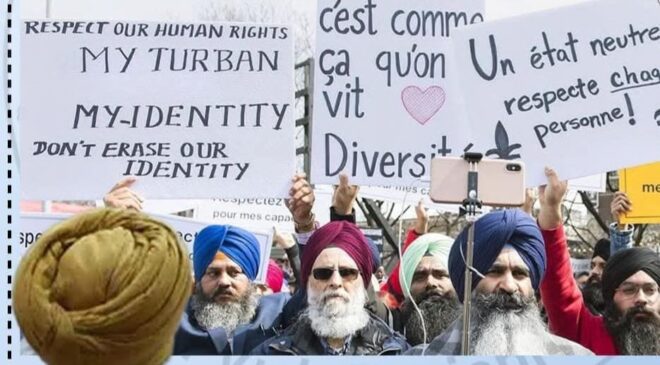 RESPECT OUR HUMAN RIGHTS
MY TURBAN
MY-IDENTITY
DON'T ERASE OUR
IDENTITY
c'est comme
ça qu'on
vit
Diversité
Un état neutre
respecte chaque
personne!
Respectez
pour mes